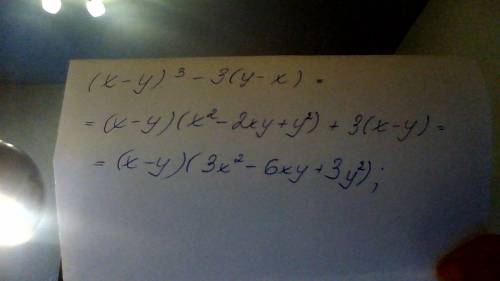 (x-y)³-3(y-x) =
= (x-y)(x²-2xy+y²) + 3(x-y) =
= (x-y)(3x²-6xy+3y²);